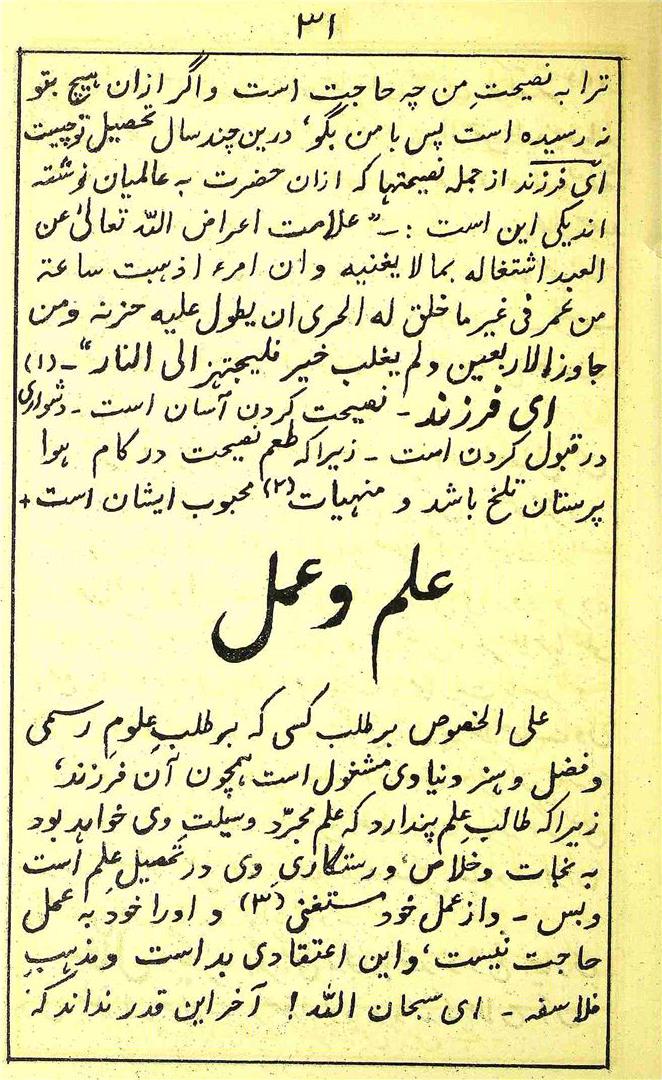 ۳۱
ترا به نصیحتِ من چه حاجت است و اگر ازان هیچ بتو
نه رسیده است پس با من بگو، درین چند سال تحصیل تو چیست
ای فرزند از جمله نصیحتها که ازان حضرت به عالمیان نوشته
اند یکی این است :ـ "علامت اعراض اللّٰه تعالیٰ عن
العبد اشتغاله بما لا یغنیه و ان امرء اذ هبت ساعة
من عمر فی غیر ما خلق له الحری ان یطول علیه حزنه و من
جاوز الاربعین و لم یغلب خیر فلیجتهز الی النار" ـ (۱)
ای فرزند ـ نصیحت کردن آسان است ـ دشواری
در قبول کردن است ـ زیرا که طعم نصیحت در کام هوا
پرستان تلخ باشد و منهیات (۲) محبوب ایشان است +
علم و عمل
علی الخصوص بر طلب کسی که بر طلبِ علومِ رسمی
و فضل و هنر دنیاوی مشغول است همچون آن فرزند،
زیرا که طالب علم پندارد که علم مجرّد وسیلتِ وی خواهد بود
به نجات و خلاص و رستگاریِ وی در تحصیل علم است
و بس ـ و از عمل خود مستغنی (۳) و اورا خود به عمل
حاجت نیست، و این اعتقادی بد است و مذهبِ
فلاسفه ـ ای سبحان اللّٰه ! آخر این قدر نداند که